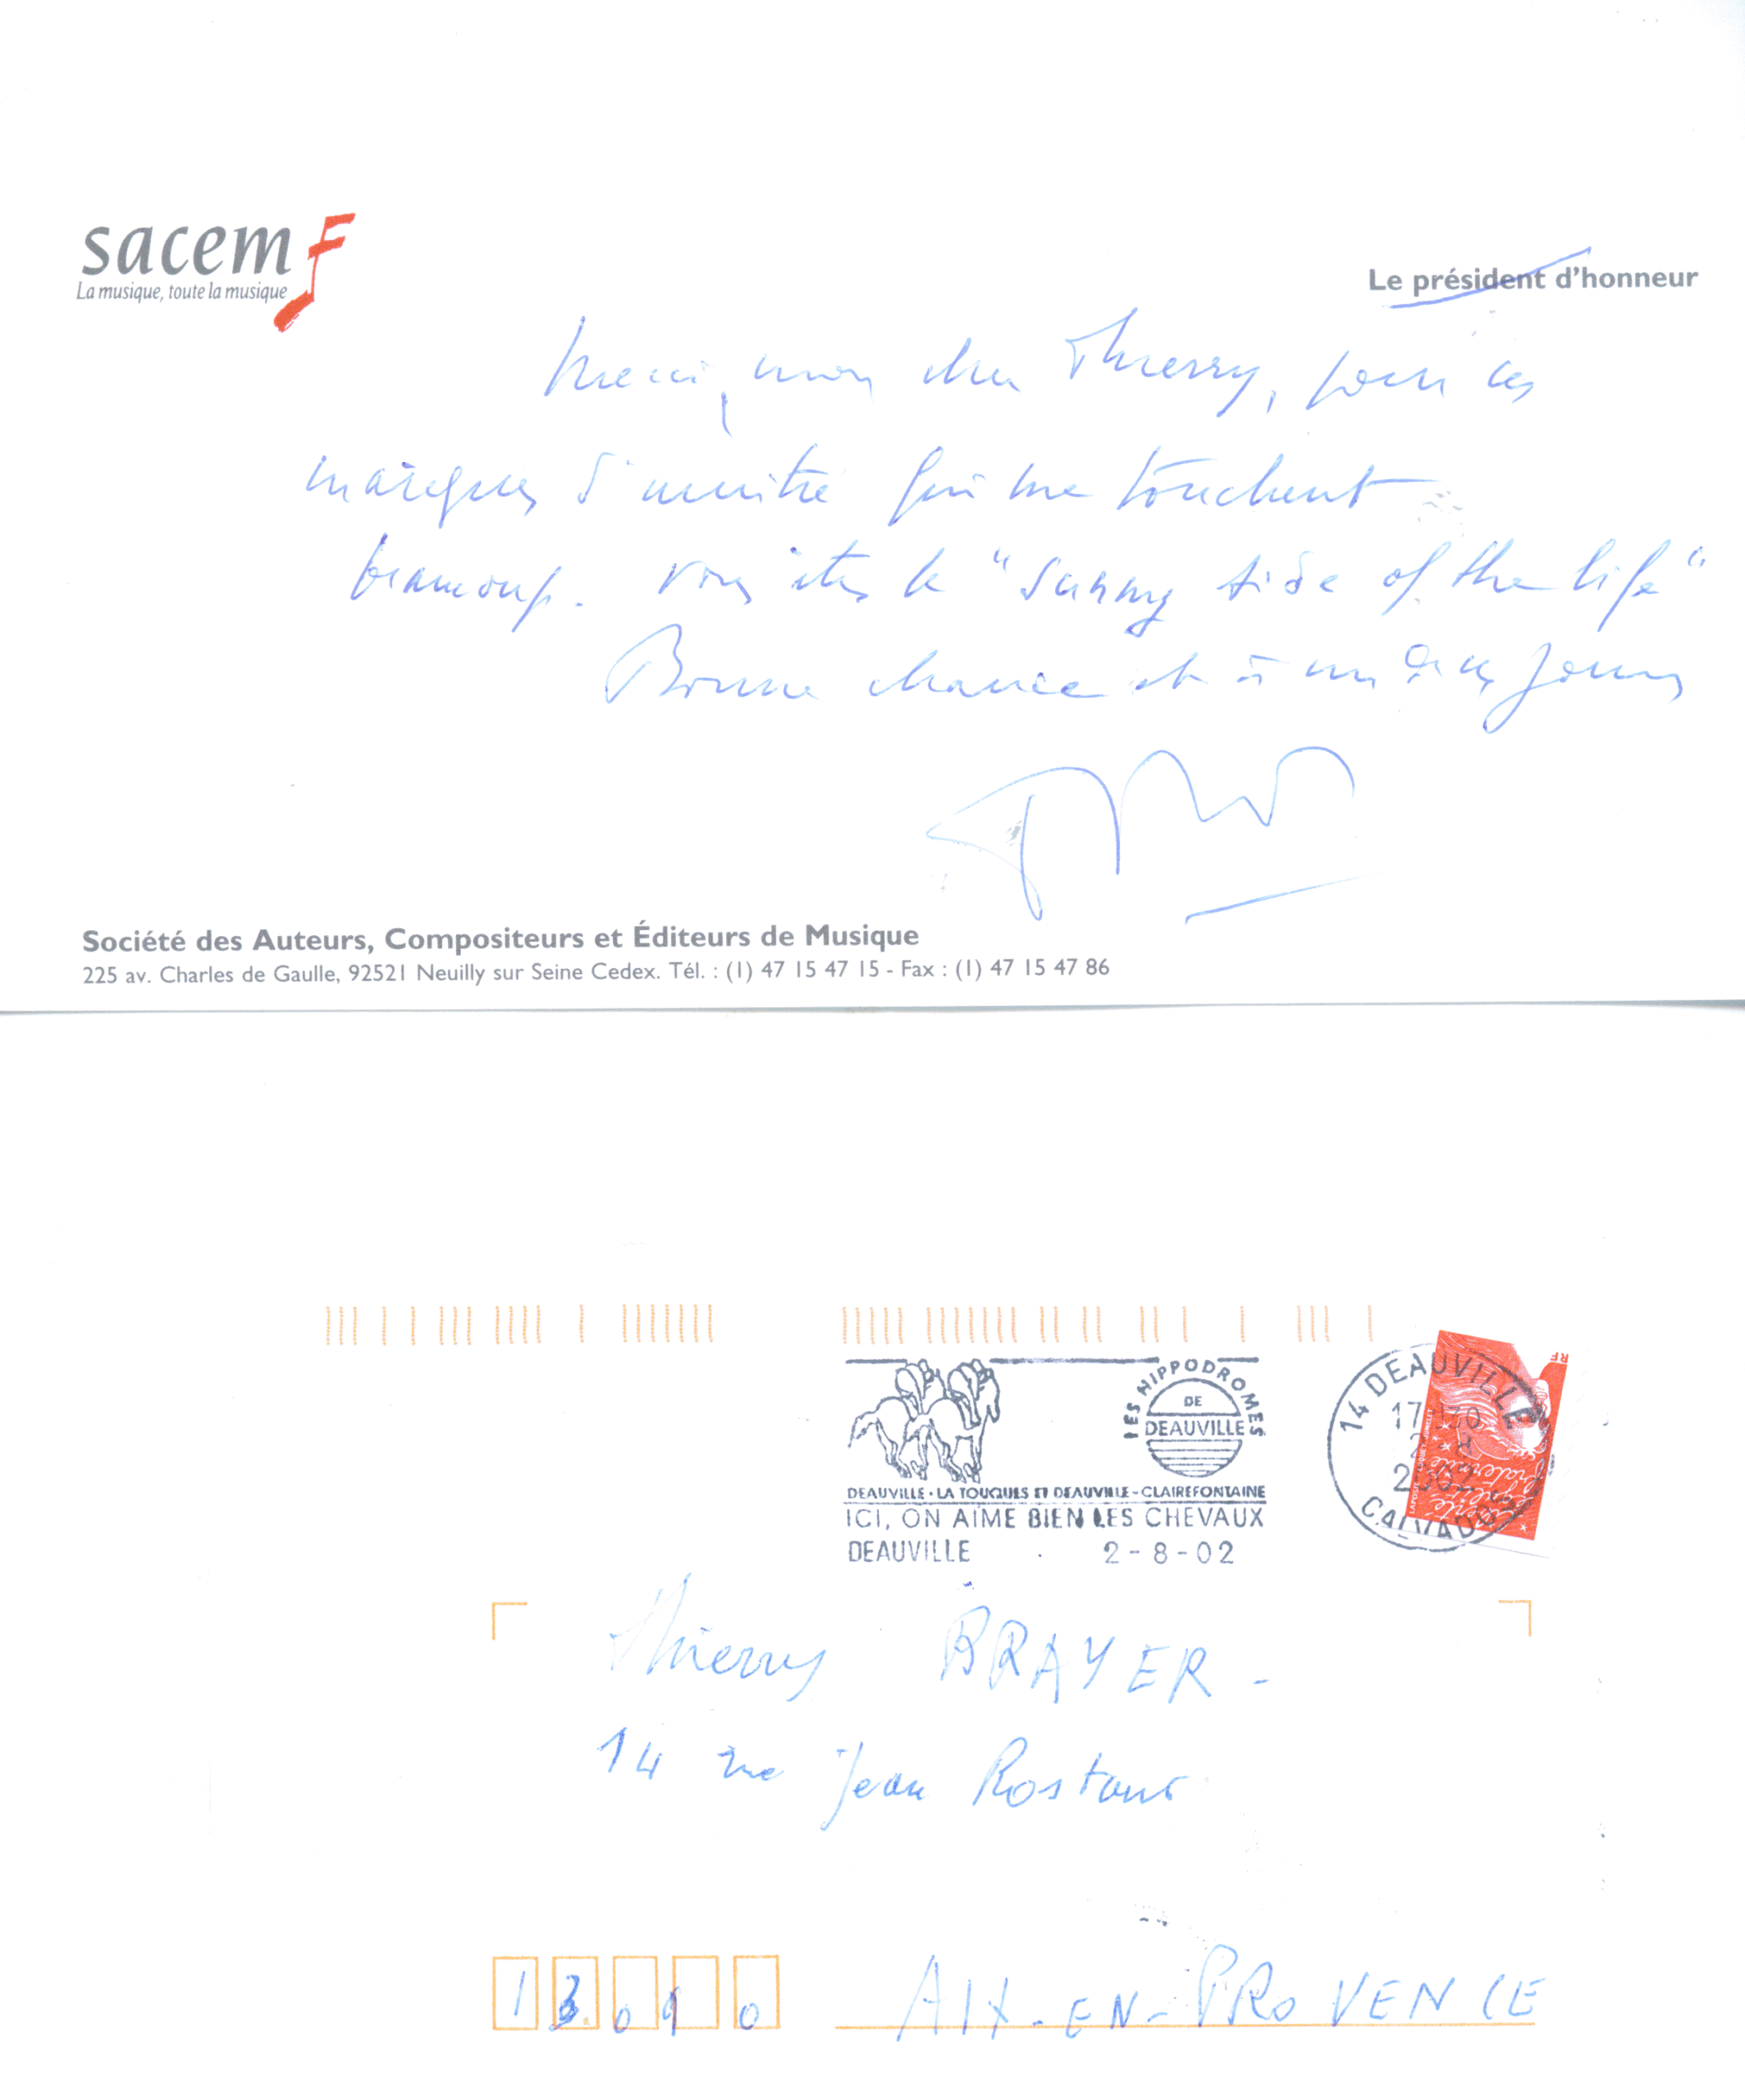 sacem
La musique, toute la musique
Le président d'honneur
Merci, mon cher Thierry, pour ces
marques d'amitié qui me touchent
beaucoup. Vous êtes le "sunny side of the life"
Bonne chance et à un de ces jours
Société des Auteurs, Compositeurs et Éditeurs de Musique
225 av. Charles de Gaulle, 92521 Neuilly sur Seine Cedex. Tél. : (1) 47 15 47 15 - Fax : (1) 47 15 47 86
LES HIPPODROMES
DE
DEAUVILLE
DEAUVILLE - LA TOUQUES ET DEAUVILLE - CLAIREFONTAINE
ICI, ON AIME BIEN LES CHEVAUX
DEAUVILLE 2-8-02
14 DEAUVILLE
17H30
2-8
2002
CALVADOS
RF
Thierry BRAYER -
14 rue Jean Rostand
13090 AIX-EN-PROVENCE